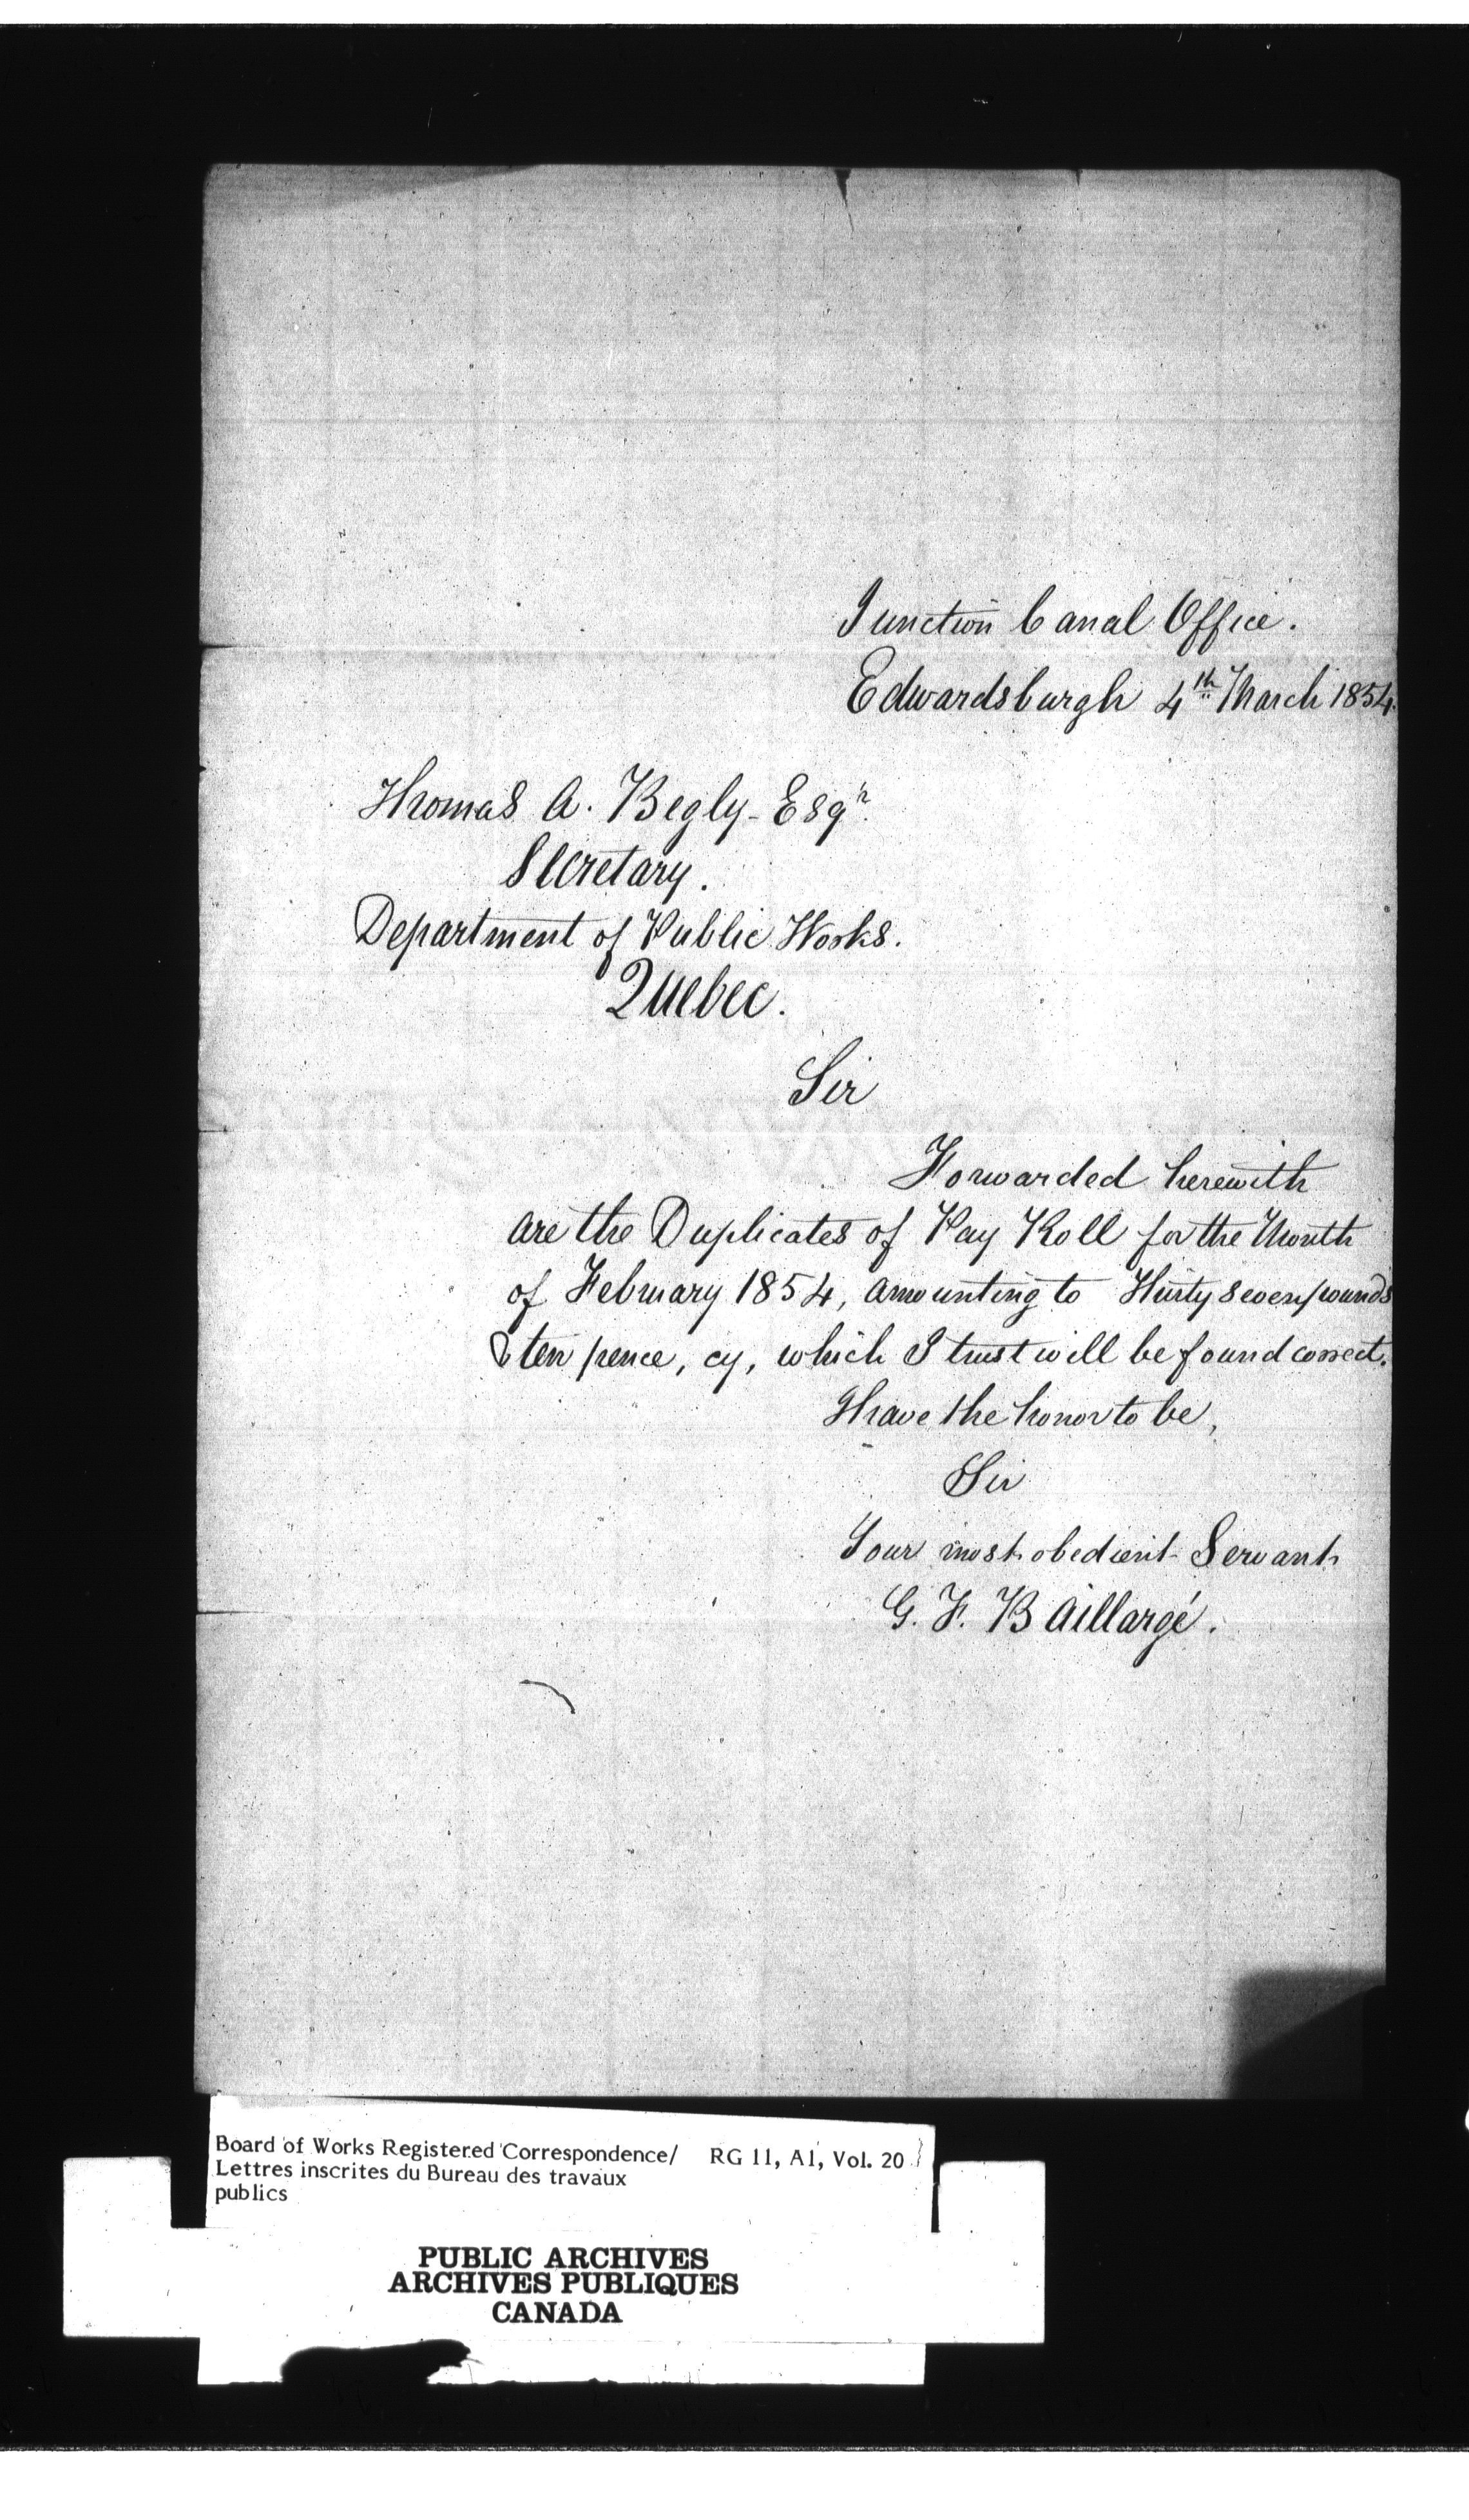 Junction Canal Office.
Edwardsburgh 4th March 1854.
Thomas A. Begly - Esqr.
Secretary.
Department of Public Works.
Quebec.
Sir
Forwarded herewith
are the Duplicates of Pay Roll for the Month
of February 1854, amounting to Thirty seven pounds
& ten pence, cy, which I trust will be found correct.
I have the honor to be,
Sir
Your most obedient Servant
G. F. Baillargé.
Board of Works Registered Correspondence/ RG 11, A1, Vol. 20
Lettres inscrites du Bureau des travaux
publics
PUBLIC ARCHIVES
ARCHIVES PUBLIQUES
CANADA